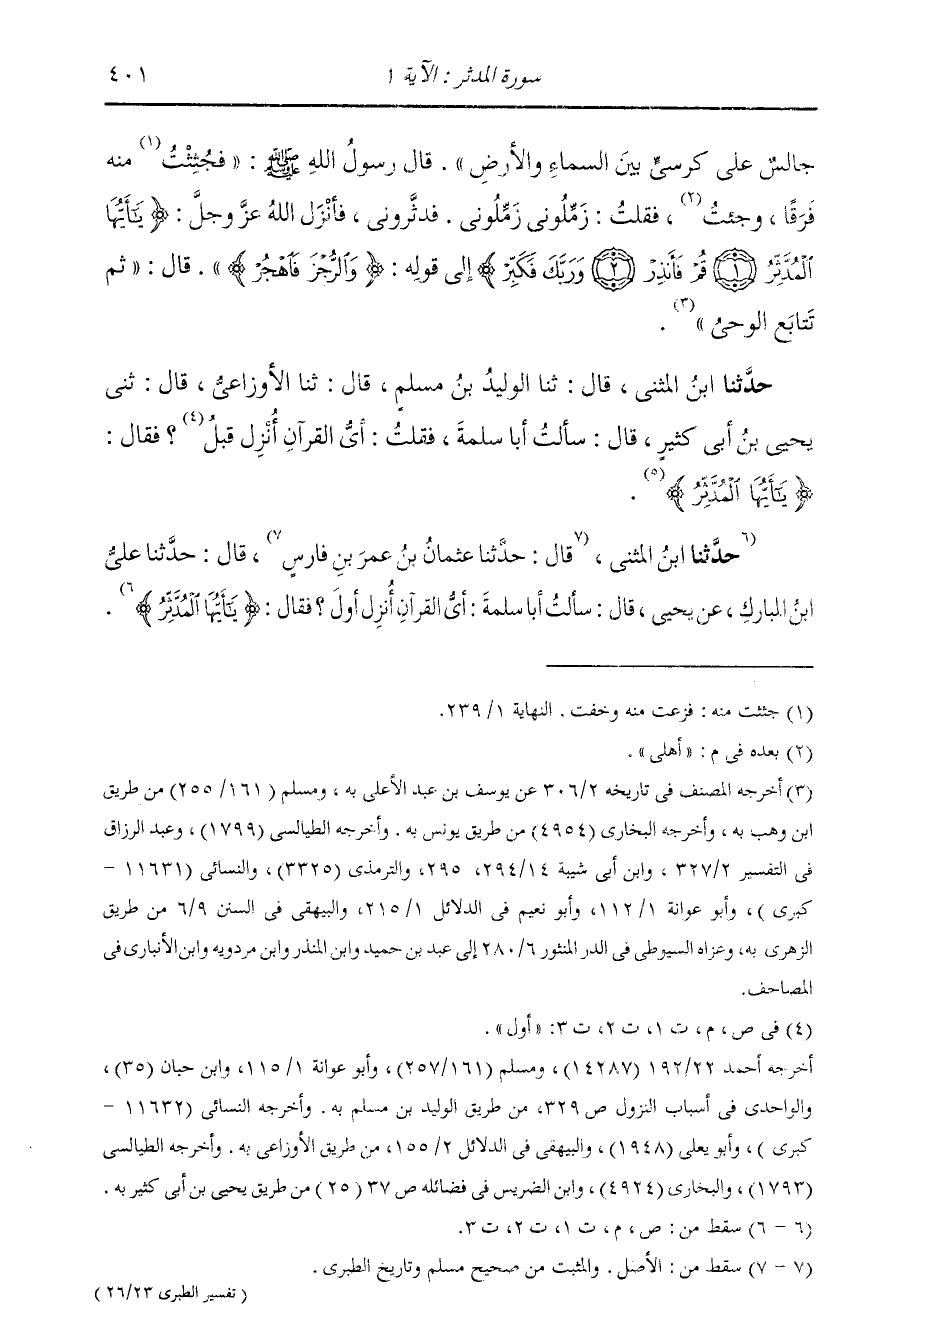 سورة المدثر : الآية ١ ٤٠١
جالسٌ على كرسىٍّ بينَ السماءِ والأرضِ » . قال رسولُ اللهِ ﷺ : « فجُئِثْتُ(١) منه
فَرَقًا ، وجئتُ(٢) ، فقلتُ : زَمِّلُونى زَمِّلُونى . فدثَّرونى ، فأنْزَل اللهُ عزَّ وجلَّ : ﴿ يَٰٓأَيُّهَا
ٱلْمُدَّثِّرُ ۝١ قُمْ فَأَنذِرْ ۝٢ وَرَبَّكَ فَكَبِّرْ ﴾ إلى قولِه : ﴿ وَٱلرُّجْزَ فَٱهْجُرْ ﴾ » . قال : « ثم
تَتابَع الوحىُ »(٣) .
حدَّثنا ابنُ المثنى ، قال : ثنا الوليدُ بنُ مسلمٍ ، قال : ثنا الأوزاعىُّ ، قال : ثنى
يحيى بنُ أبى كثيرٍ ، قال : سألتُ أبا سلمةَ ، فقلتُ : أىُّ القرآنِ أُنْزِل قبلُ(٤) ؟ فقال :
﴿ يَٰٓأَيُّهَا ٱلْمُدَّثِّرُ ﴾(٥) .
(٦حدَّثنا ابنُ المثنى ، (٧قال : حدَّثنا عثمانُ بنُ عمرَ بنِ فارسٍ٧) ، قال : حدَّثنا علىُّ
ابنُ المباركِ ، عن يحيى ، قال : سألتُ أبا سلمةَ : أىُّ القرآنِ أُنزِل أولَ ؟ فقال : ﴿ يَٰٓأَيُّهَا ٱلْمُدَّثِّرُ ﴾٦) .
(١) جئثت منه : فزعت منه وخفت . النهاية ١/ ٢٣٩.
(٢) بعده فى م : « أهلى » .
(٣) أخرجه المصنف فى تاريخه ٣٠٦/٢ عن يوسف بن عبد الأعلى به ، ومسلم ( ١٦١/ ٢٥٥) من طريق
ابن وهب به ، وأخرجه البخارى (٤٩٥٤) من طريق يونس به . وأخرجه الطيالسى (١٧٩٩) ، وعبد الرزاق
فى التفسير ٣٢٧/٢ ، وابن أبى شيبة ٢٩٤/١٤، ٢٩٥، والترمذى (٣٣٢٥) ، والنسائى (١١٦٣١ –
كبرى ) ، وأبو عوانة ١/ ١١٢، وأبو نعيم فى الدلائل ١/ ٢١٥، والبيهقى فى السنن ٦/٩ من طريق
الزهرى به، وعزاه السيوطى فى الدر المنثور ٢٨٠/٦ إلى عبد بن حميد وابن المنذر وابن مردويه وابن الأنبارى فى
المصاحف.
(٤) فى ص ، م ، ت ١، ت ٢، ت ٣: « أول » .
أخرجه أحمد ١٩٢/٢٢ (١٤٢٨٧) ، ومسلم (٢٥٧/١٦١) ، وأبو عوانة ١/ ١١٥، وابن حبان (٣٥) ،
والواحدى فى أسباب النزول ص ٣٢٩، من طريق الوليد بن مسلم به . وأخرجه النسائى (١١٦٣٢ –
كبرى ) ، وأبو يعلى (١٩٤٨) ، والبيهقى فى الدلائل ٢/ ١٥٥، من طريق الأوزاعى به . وأخرجه الطيالسى
(١٧٩٣) ، والبخارى (٤٩٢٤) ، وابن الضريس فى فضائله ص ٣٧ ( ٢٥ ) من طريق يحيى بن أبى كثير به .
(٦ – ٦) سقط من : ص ، م ، ت ١، ت ٢، ت ٣.
(٧ – ٧) سقط من : الأصل . والمثبت من صحيح مسلم وتاريخ الطبرى .
( تفسير الطبرى ٢٦/٢٣ )